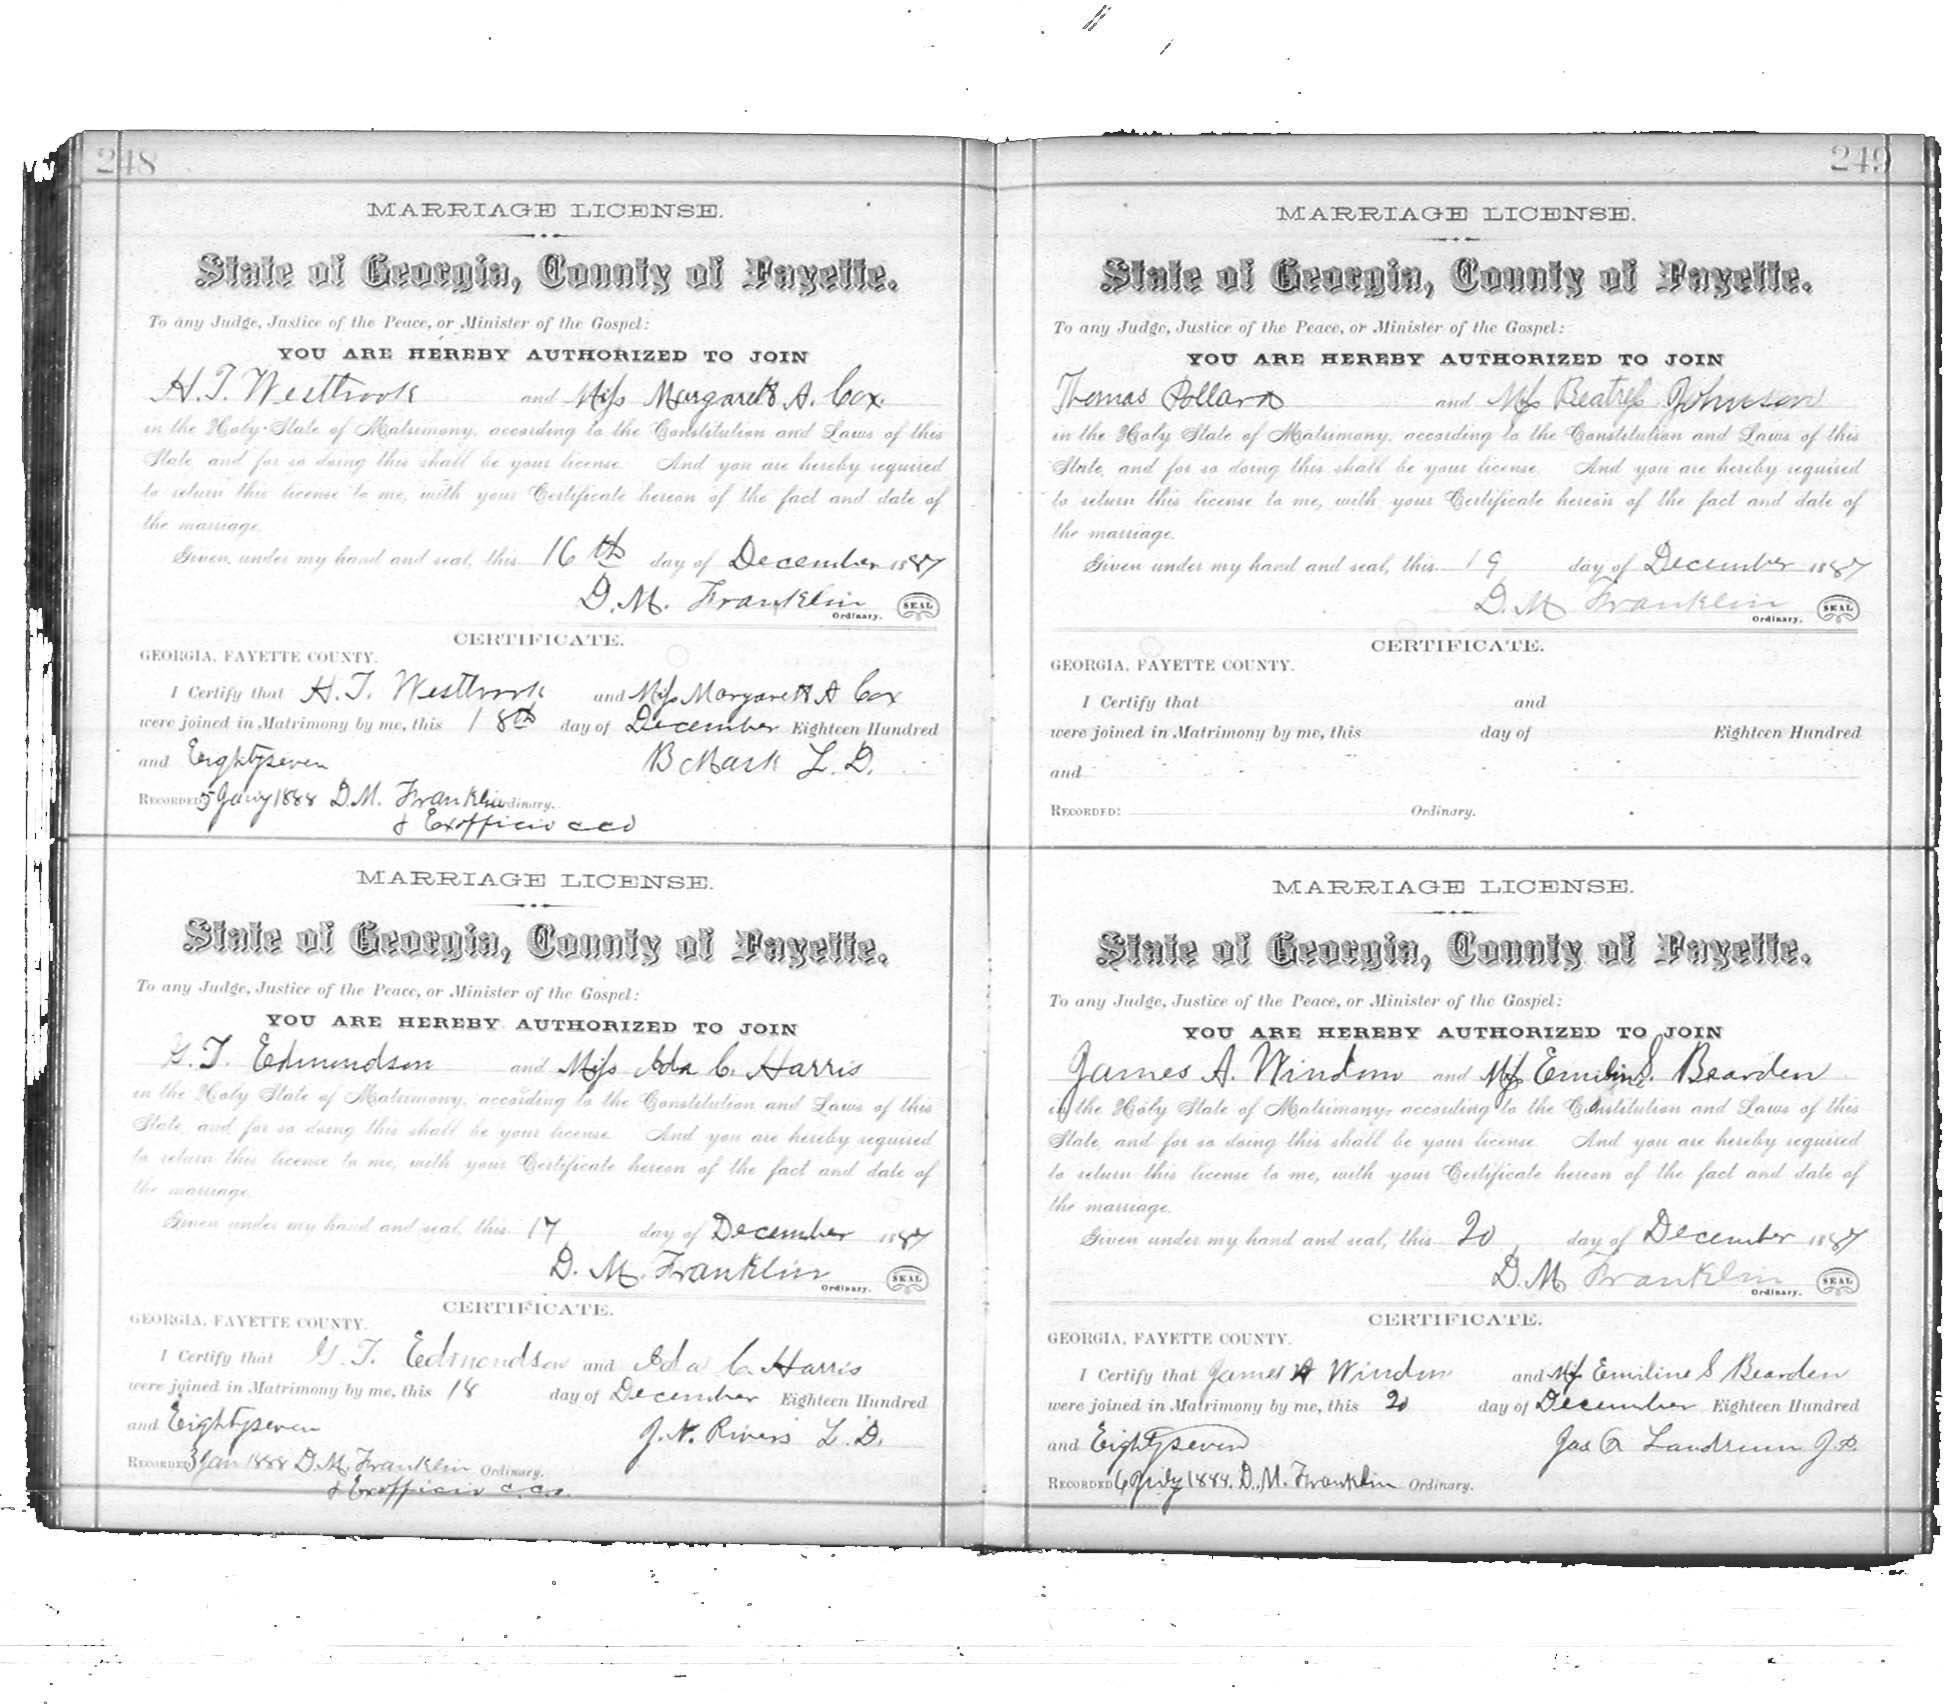 248
MARRIAGE LICENSE.
State of Georgia, County of Fayette.
To any Judge, Justice of the Peace, or Minister of the Gospel:
YOU ARE HEREBY AUTHORIZED TO JOIN
H. T. Westbrook and Miss Margarett A. Cox.
in the Holy State of Matrimony, according to the Constitution and Laws of this
State, and for so doing this shall be your license. And you are hereby required
to return this license to me, with your Certificate hereon of the fact and date of
the marriage.
Given under my hand and seal, this 16th day of December 1887
D. M. Franklin SEAL
Ordinary.
CERTIFICATE.
GEORGIA, FAYETTE COUNTY.
I Certify that H. T. Westbrook and Miss Margarett A Cox
were joined in Matrimony by me, this 18th day of December Eighteen Hundred
and Eightyseven
RECORDED 5 1888 D. M. Franklin Ordinary.
& Exofficio cco
MARRIAGE LICENSE.
State of Georgia, County of Fayette.
To any Judge, Justice of the Peace, or Minister of the Gospel:
YOU ARE HEREBY AUTHORIZED TO JOIN
G. T. Edmondson and Miss Ada C. Harris
in the Holy State of Matrimony, according to the Constitution and Laws of this
State, and for so doing this shall be your license. And you are hereby required
to return this license to me, with your Certificate hereon of the fact and date of
the marriage.
Given under my hand and seal, this 17 day of December 1887
D. M. Franklin SEAL
Ordinary.
CERTIFICATE.
GEORGIA, FAYETTE COUNTY.
I Certify that G. T. Edmondson and Ada C. Harris
were joined in Matrimony by me, this 18 day of December Eighteen Hundred
and Eightyseven J. N. Rivers L. D.
RECORDED 3 Jan 1888 D. M. Franklin Ordinary.
& Exofficio c.co.
249
MARRIAGE LICENSE.
State of Georgia, County of Fayette.
To any Judge, Justice of the Peace, or Minister of the Gospel:
YOU ARE HEREBY AUTHORIZED TO JOIN
Thomas Pollard and Miss Beatress Johnson
in the Holy State of Matrimony, according to the Constitution and Laws of this
State, and for so doing this shall be your license. And you are hereby required
to return this license to me, with your Certificate hereon of the fact and date of
the marriage.
Given under my hand and seal, this 19 day of December 1887
D. M Franklin SEAL
Ordinary.
CERTIFICATE.
GEORGIA, FAYETTE COUNTY.
I Certify that and
were joined in Matrimony by me, this day of Eighteen Hundred
and
RECORDED: Ordinary.
MARRIAGE LICENSE.
State of Georgia, County of Fayette.
To any Judge, Justice of the Peace, or Minister of the Gospel:
YOU ARE HEREBY AUTHORIZED TO JOIN
James A. Windom and Miss S. Bearden
in the Holy State of Matrimony, according to the Constitution and Laws of this
State, and for so doing this shall be your license. And you are hereby required
to return this license to me, with your Certificate hereon of the fact and date of
the marriage.
Given under my hand and seal, this 20 day of December 1887
D. M Franklin SEAL
Ordinary.
CERTIFICATE.
GEORGIA, FAYETTE COUNTY.
I Certify that James A Windom and Miss Emiline S Bearden
were joined in Matrimony by me, this 20 day of December Eighteen Hundred
and Eightyseven Jas Landrum J. P.
RECORDED 6 1888. D. M. Franklin Ordinary.